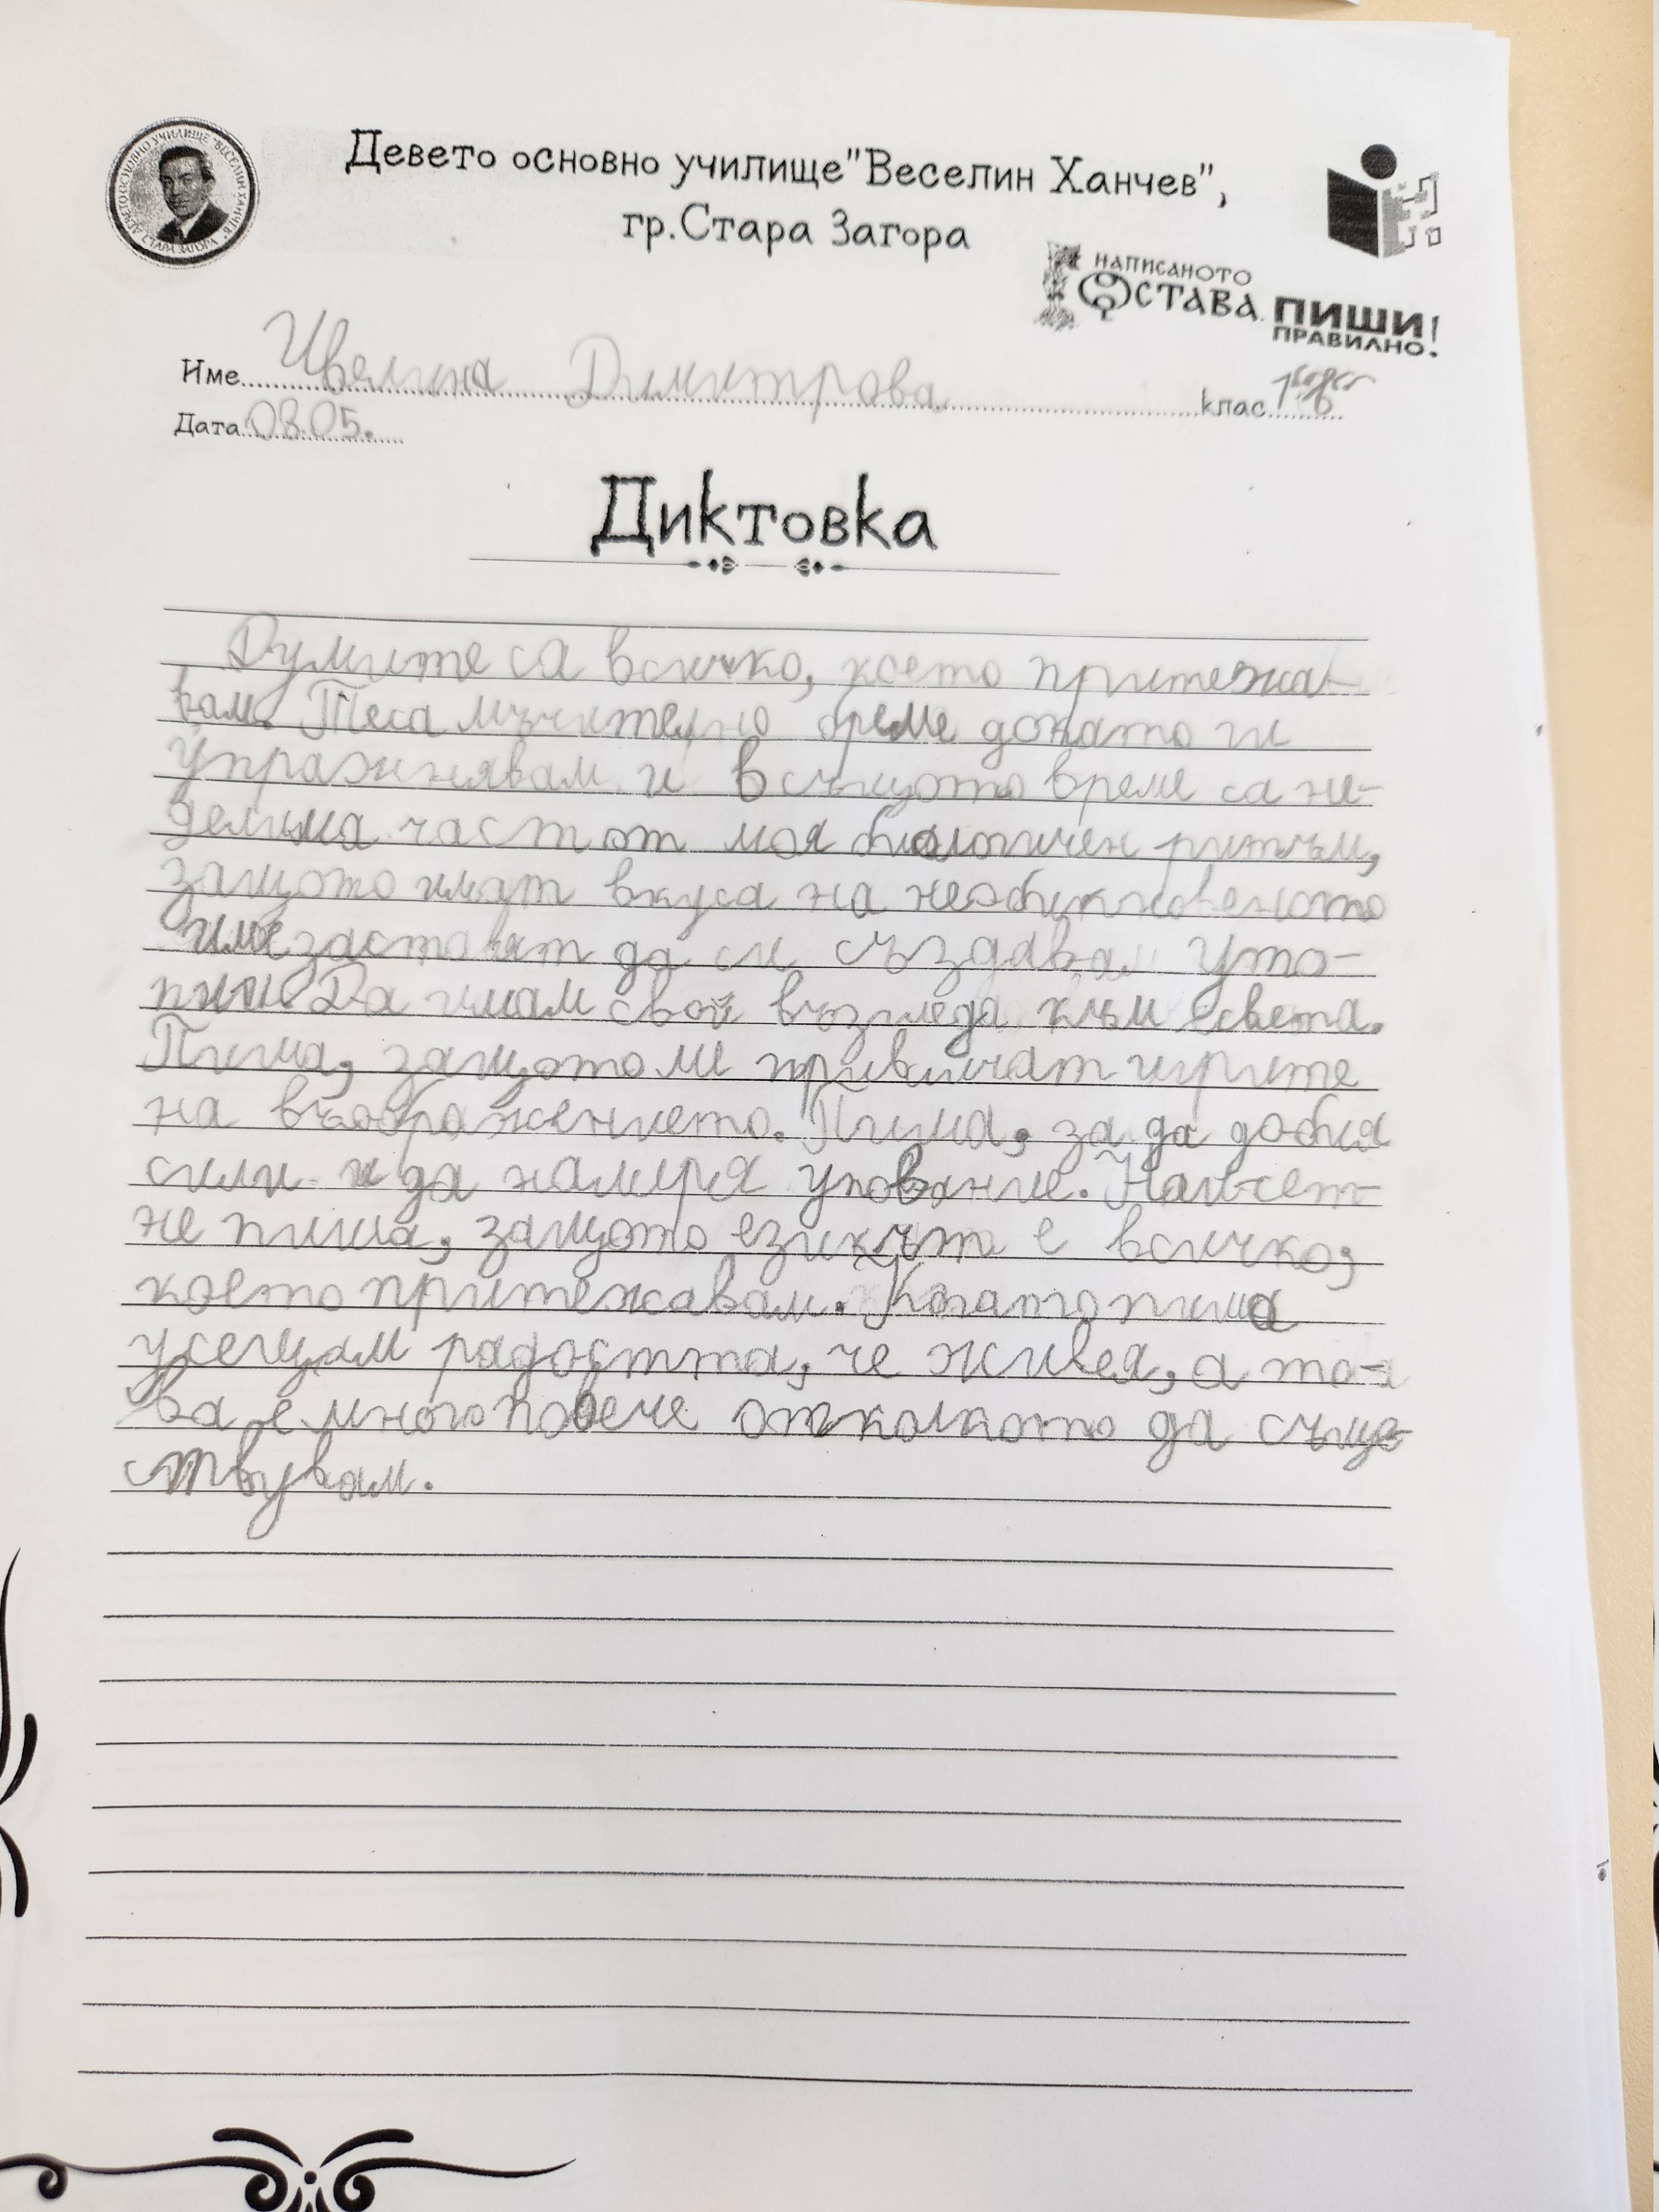 ДЕВЕТО ОСНОВНО УЧИЛИЩЕ "ВЕСЕЛИН ХАНЧЕВ" СТАРА ЗАГОРА
Девето основно училище"Веселин Ханчев",
гр.Стара Загора
НАПИСАНОТО
ОСТАВА. ПИШИ
ПРАВИЛНО!
Име Ивелина Димитрова клас
Дата 08.05.
Диктовка
Думите са всичко, което притежа-
вам. Теса мъчително време докато ги
упражнявам и в същото време са не-
делима част от моя биологичен ритъм,
защото имат вкуса на необикновеното
име заставят да си създавам уто-
пии. Да имам свой възгледа към света.
Пиша, защото ме привличат игрите
на въображението. Пиша, за да добия
сили и да намеря упование. Най-сет-
не пиша, защото езикът е всичко,
което притежавам. Когато пиша
усещам радостта, че живея, а то-
ва е много повече отколкото да съще-
ствувам.